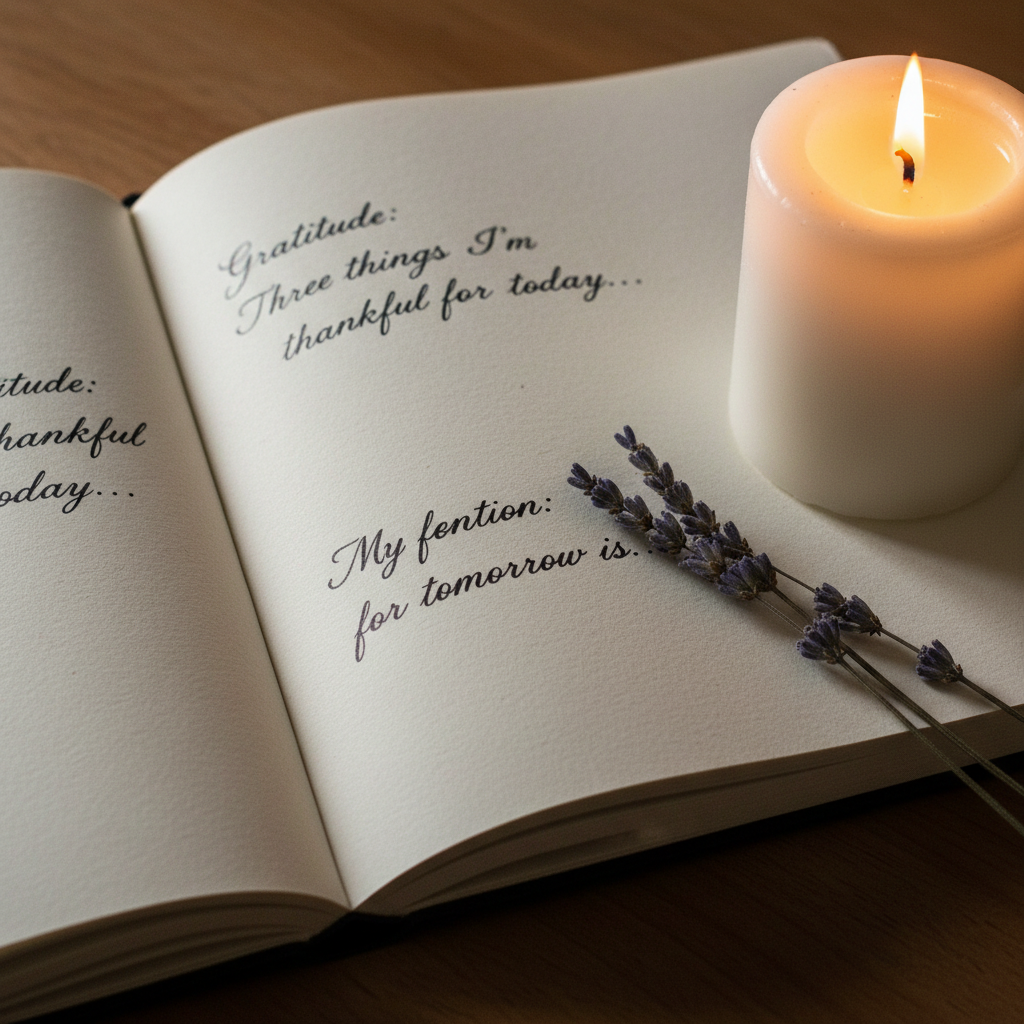 itude:
hankful
oday...
Gratitude:
Three things I'm
thankful for today...
My fention:
for tomorrow is...